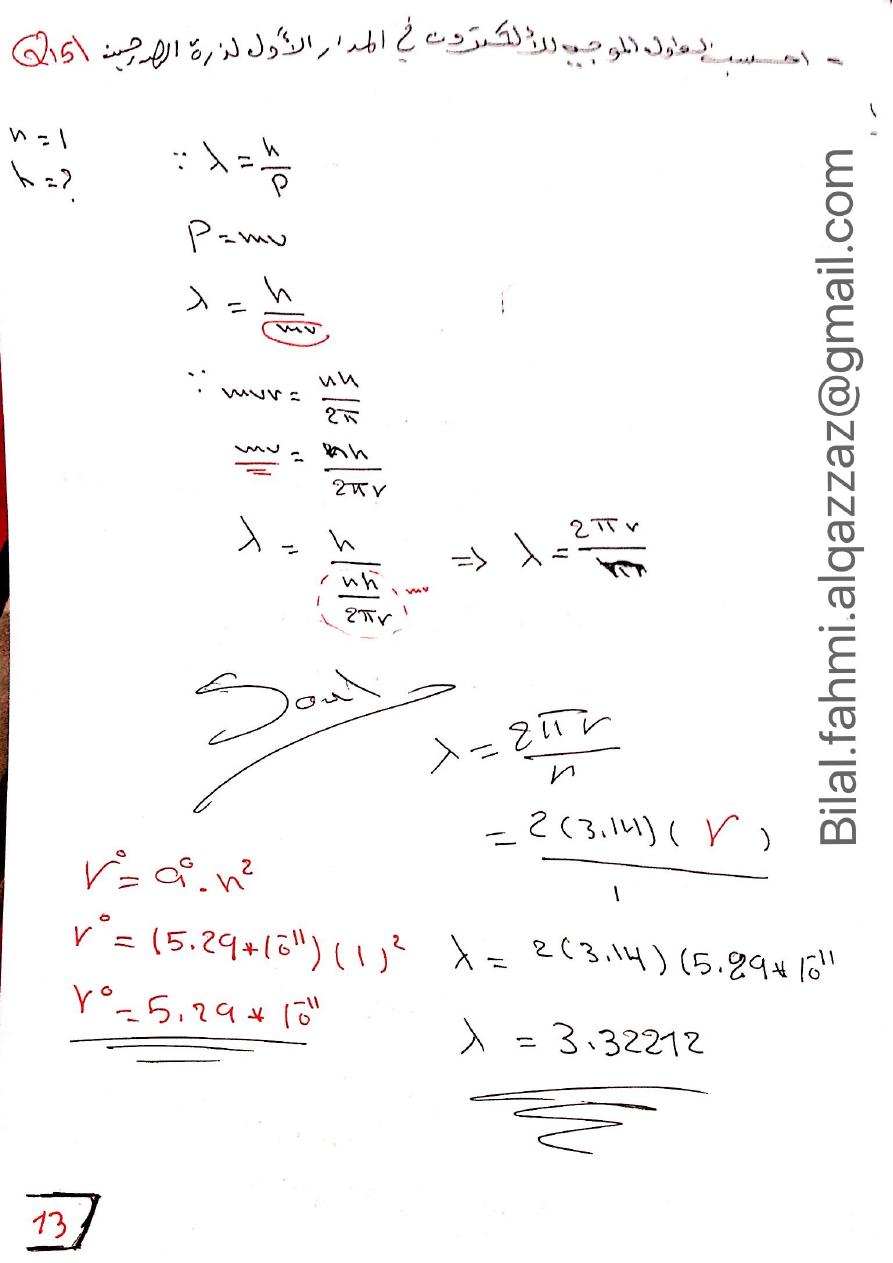 - احسب الطول الموجي للألكترون في المدار الأول لذرة الهيدروجين Q15\
n = 1
λ = ?
∵ λ = h/P
P = mv
λ = h/mv
∵ mvr = nh/2π
mv = nh/2πr
λ = h/(nh/2πr) mv => λ = 2πr/
λ = 2πr/n
= 2(3.14)(r)/1
r° = a°.n²
r° = (5.29*10⁻¹¹)(1)²
λ = 2(3.14)(5.29*10⁻¹¹
r° = 5.29*10⁻¹¹
λ = 3.32212
13
Bilal.fahmi.alqazzaz@gmail.com